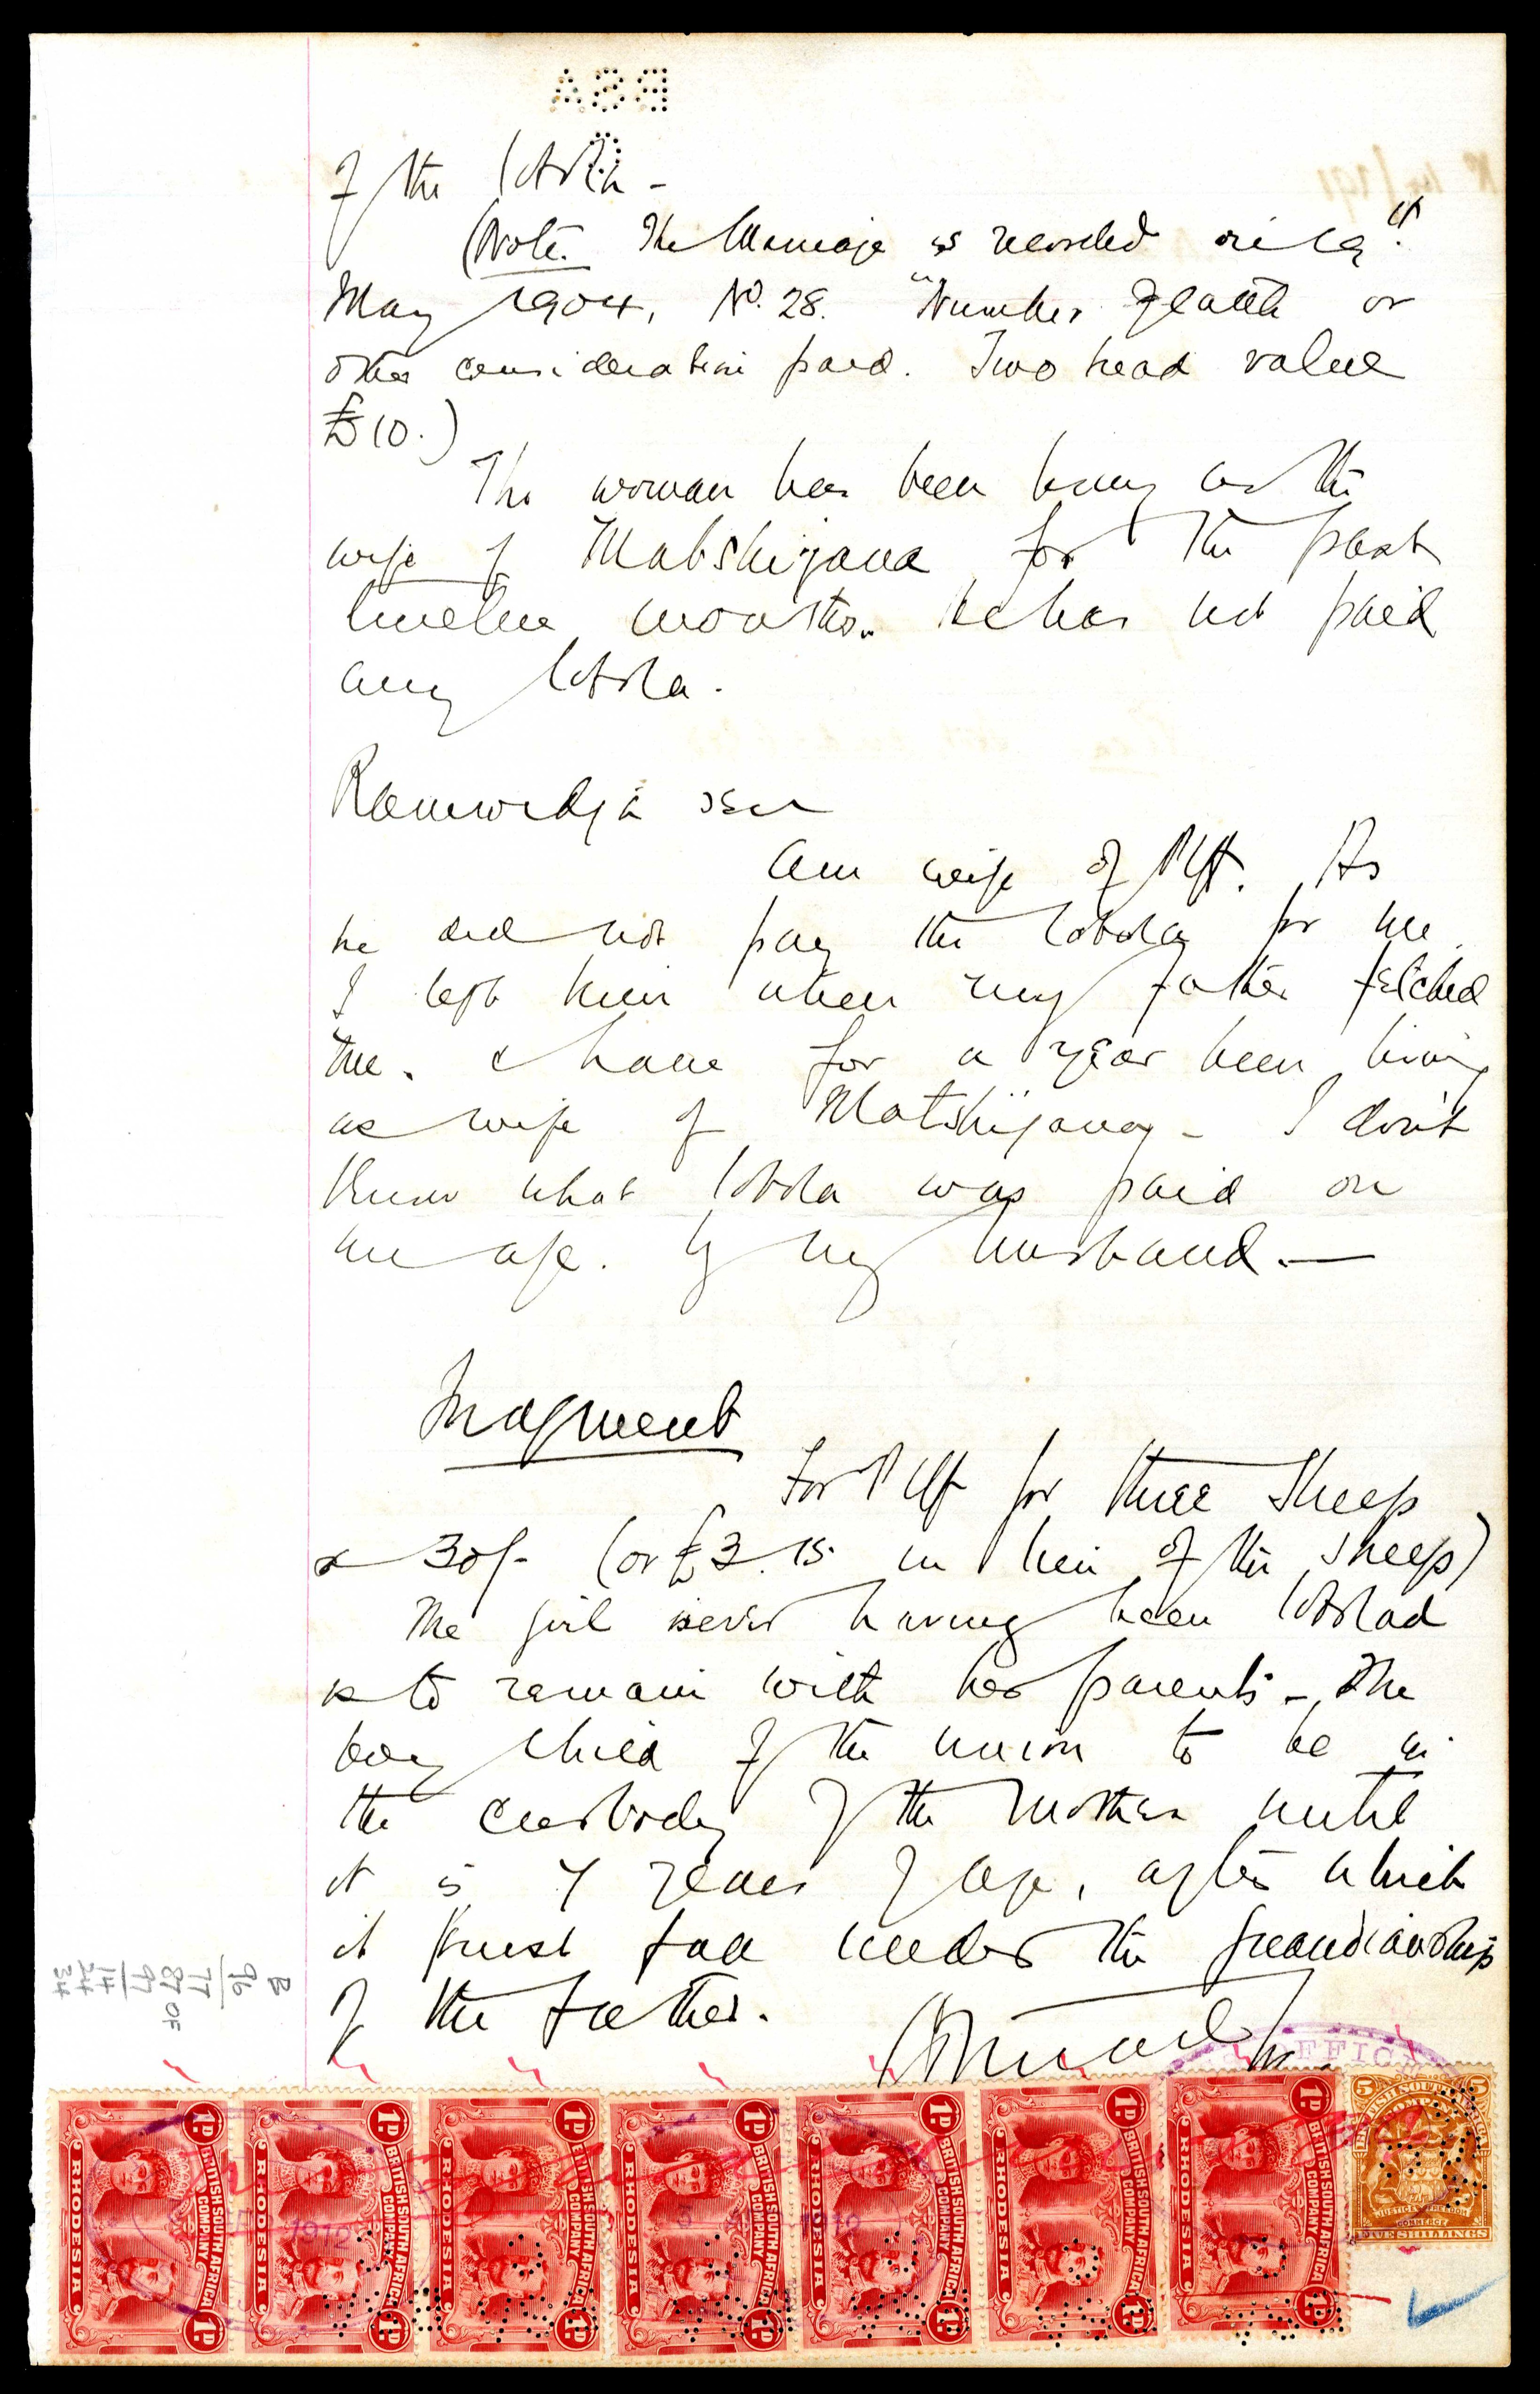 BSA
of the lobola -
(Note. The Marriage is recorded
May 1904, No. 28. "Number of cattle or
other consideration paid. Two head value
£10.)
The woman has been living as the
wife of Matshijana for the past
twelve months. He has not paid
any lobola.
am wife of Plff. As
he did not pay the lobola for me
I left him when my father fetched
me. & have for a year been living
as wife of Matshijana - I don't
know what lobola was paid on
by my husband. —
Judgment
For Plff for three sheep
& 30/- (or £3.15 in lieu of the sheep)
The girl never having been lobolad
is to remain with her parents - The
boy child of the union to be in
the custody of the mother until
it is 7 years of age, after which
it must fall under the guardianship
of the father.
B
96
77
87 OF
97
14
24
34
OFFIC
1PD BRITISH SOUTH AFRICA COMPANY RHODESIA 1PD
1PD BRITISH SOUTH AFRICA COMPANY RHODESIA 1PD
1PD BRITISH SOUTH AFRICA COMPANY RHODESIA 1PD
1PD BRITISH SOUTH AFRICA COMPANY RHODESIA 1PD
1PD BRITISH SOUTH AFRICA COMPANY RHODESIA 1PD
1PD BRITISH SOUTH AFRICA COMPANY RHODESIA 1PD
1PD BRITISH SOUTH AFRICA COMPANY RHODESIA 1PD
1912
1912
5 BRITISH SOUTH AFRICA COMPANY 5
JUSTICE FREEDOM
COMMERCE
FIVE SHILLINGS